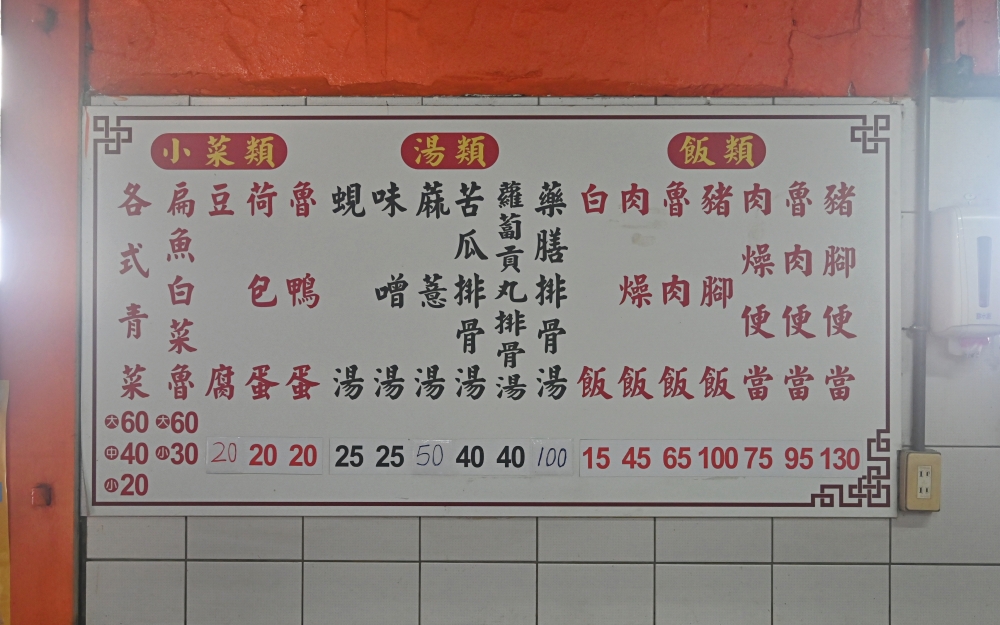 飯類
豬腳便當
130
魯肉便當
95
肉燥便當
75
豬腳飯
100
魯肉飯
65
肉燥飯
45
白飯
15
湯類
藥膳排骨湯
100
蘿蔔貢丸排骨湯
40
苦瓜排骨湯
40
蔴薏湯
50
味噌湯
25
蜆湯
25
小菜類
魯鴨蛋
20
荷包蛋
20
豆腐
20
扁魚白菜魯
大60
小30
各式青菜
大60
中40
小20